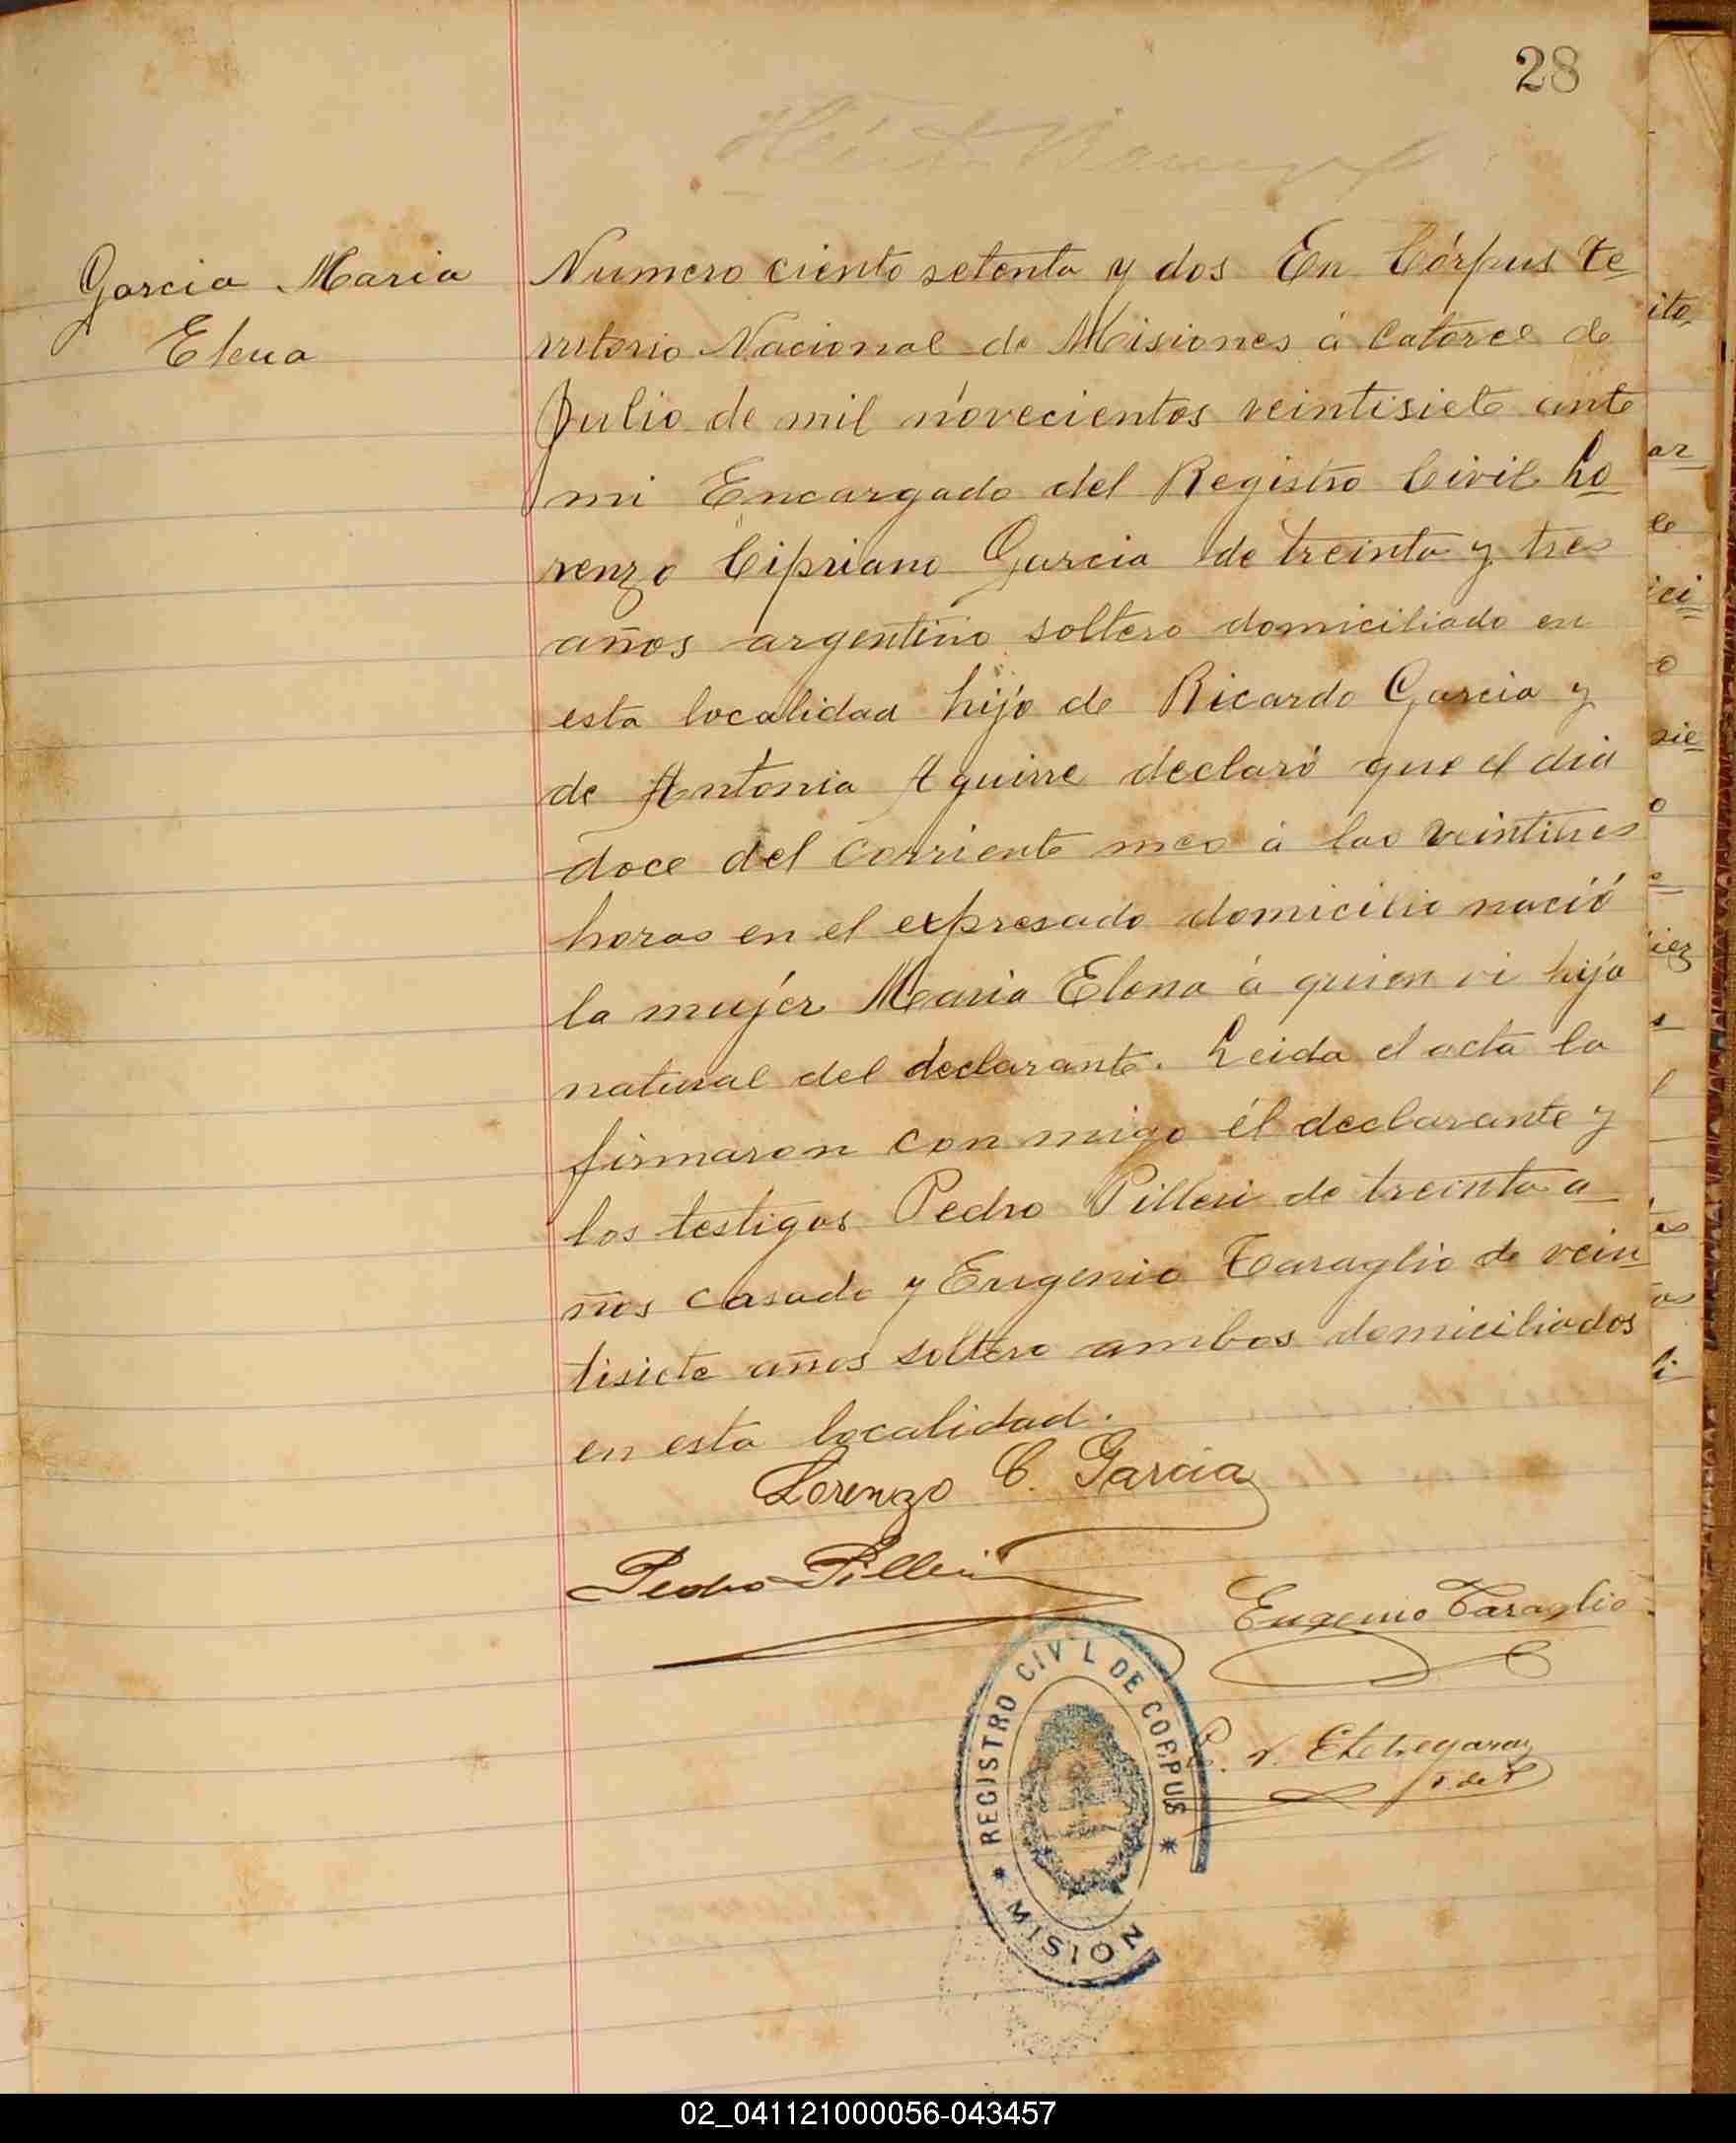 28
Garcia Maria
Elena
Numero ciento setenta y dos En Córpus te-
rritorio Nacional de Misiones á catorce de
Julio de mil novecientos veintisiete ante
mi Encargado del Registro Civil Lo-
renzo Cipriano Garcia de treinta y tres
años argentino soltero domiciliado en
esta localidad hijo de Ricardo Garcia y
de Antonia Aguirre declaró que el dia
doce del corriente mes á las veintitres
horas en el expresado domicilio nació
la mujer Maria Elena á quien vi hija
natural del declarante. Leida el acta la
firmaron con migo él declarante y
los testigos Pedro Pilleri de treinta a-
ños casado y Eugenio Taraglio de vein-
tisiete años soltero ambos domiciliados
en esta localidad.
Lorenzo C. Garcia
Pedro Pilleri
Eugenio Taraglio
Etchegaray
REGISTRO CIVIL DE CORPUS
MISION
02_041121000056-043457